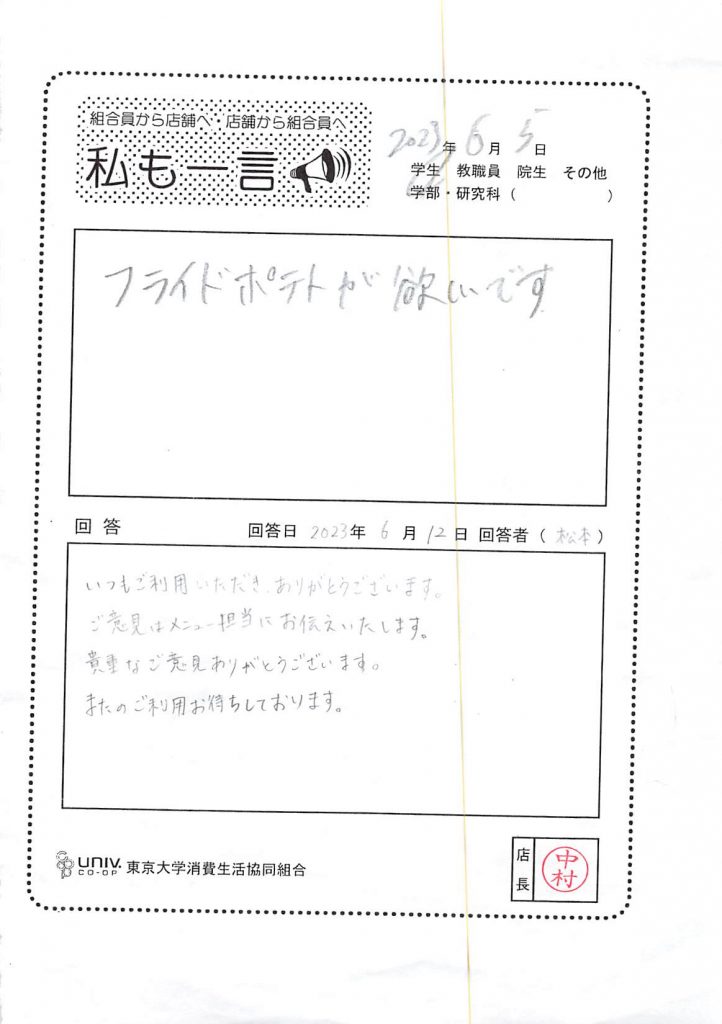 組合員から店舗へ・店舗から組合員へ
私も一言
2023年6月5日
学生 教職員 院生 その他
学部・研究科（ ）
フライドポテトが欲しいです
回答 回答日 2023年 6月12日 回答者（松本）
いつもご利用いただき、ありがとうございます。
ご意見はメニュー担当にお伝えいたします。
貴重なご意見ありがとうございます。
またのご利用お待ちしております。
CO-OP UNIV. CO-OP 東京大学消費生活協同組合
店長 中村